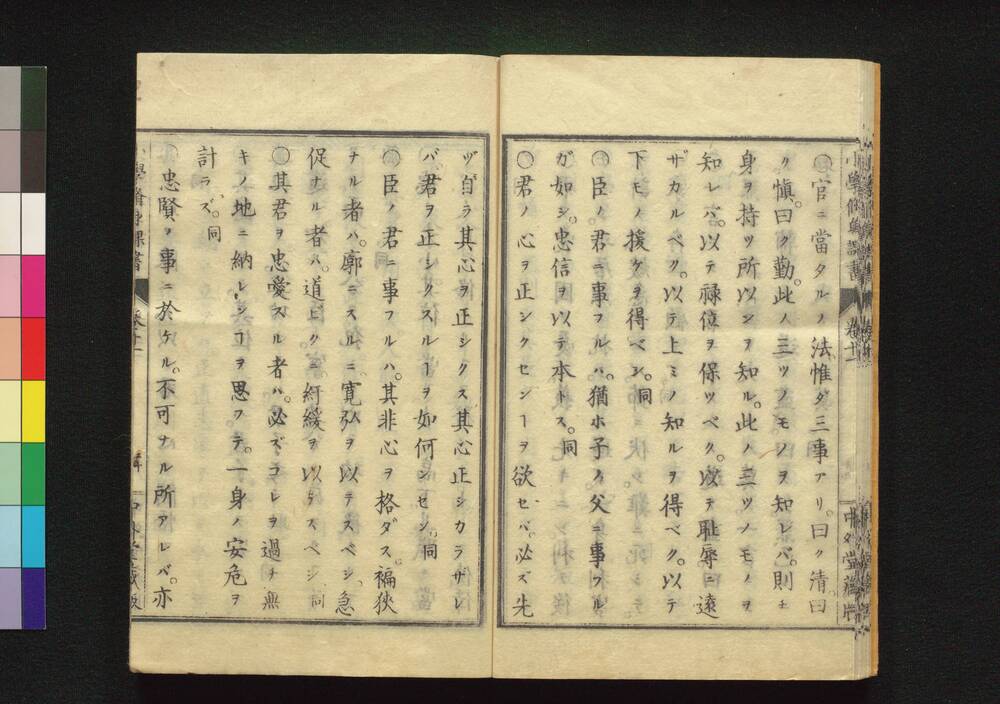 小學修身課書
卷十一
中外堂藏版
〇官ニ當タルノ法惟ダ三事アリ。曰ク清。曰
ク愼。曰ク勤。此ノ三ツノモノヲ知レバ。則チ
身ヲ持ツ所以ンヲ知ル。此ノ三ツノモノヲ
知レバ。以テ祿位ヲ保ツベク。以テ恥辱ニ遠
ザカルベク。以テ上ミノ知ルヲ得ベク。以テ
下モノ援ケヲ得ベシ。同
〇臣ノ。君ニ事フルハ。猶ホ子ノ父ニ事フル
ガ如シ。忠信ヲ以テ本トス。同
〇君ノ心ヲ正シクセンヿヲ欲セバ。必ズ先
ヅ自ラ其心ヲ正シクス其心正シカラザレ
バ。君ヲ正シクスルヿヲ如何ンセン。同
〇臣ノ君ニ事フルハ。其非心ヲ格ダス。褊狹
ナル者ハ。廓ニスルニ。寛弘ヲ以テスベシ。急
促ナル者ハ。道ビクニ。紆緩ヲ以テスベシ。同
〇其君ヲ忠愛スル者ハ。必ズコレヲ過チ無
キノ地ニ納レンヿヲ思フテ。一身ノ安危ヲ
計ラズ。同
〇忠賢ノ事ニ於ケル。不可ナル所アレバ。亦
小學修身課書
卷十一
中外堂藏版